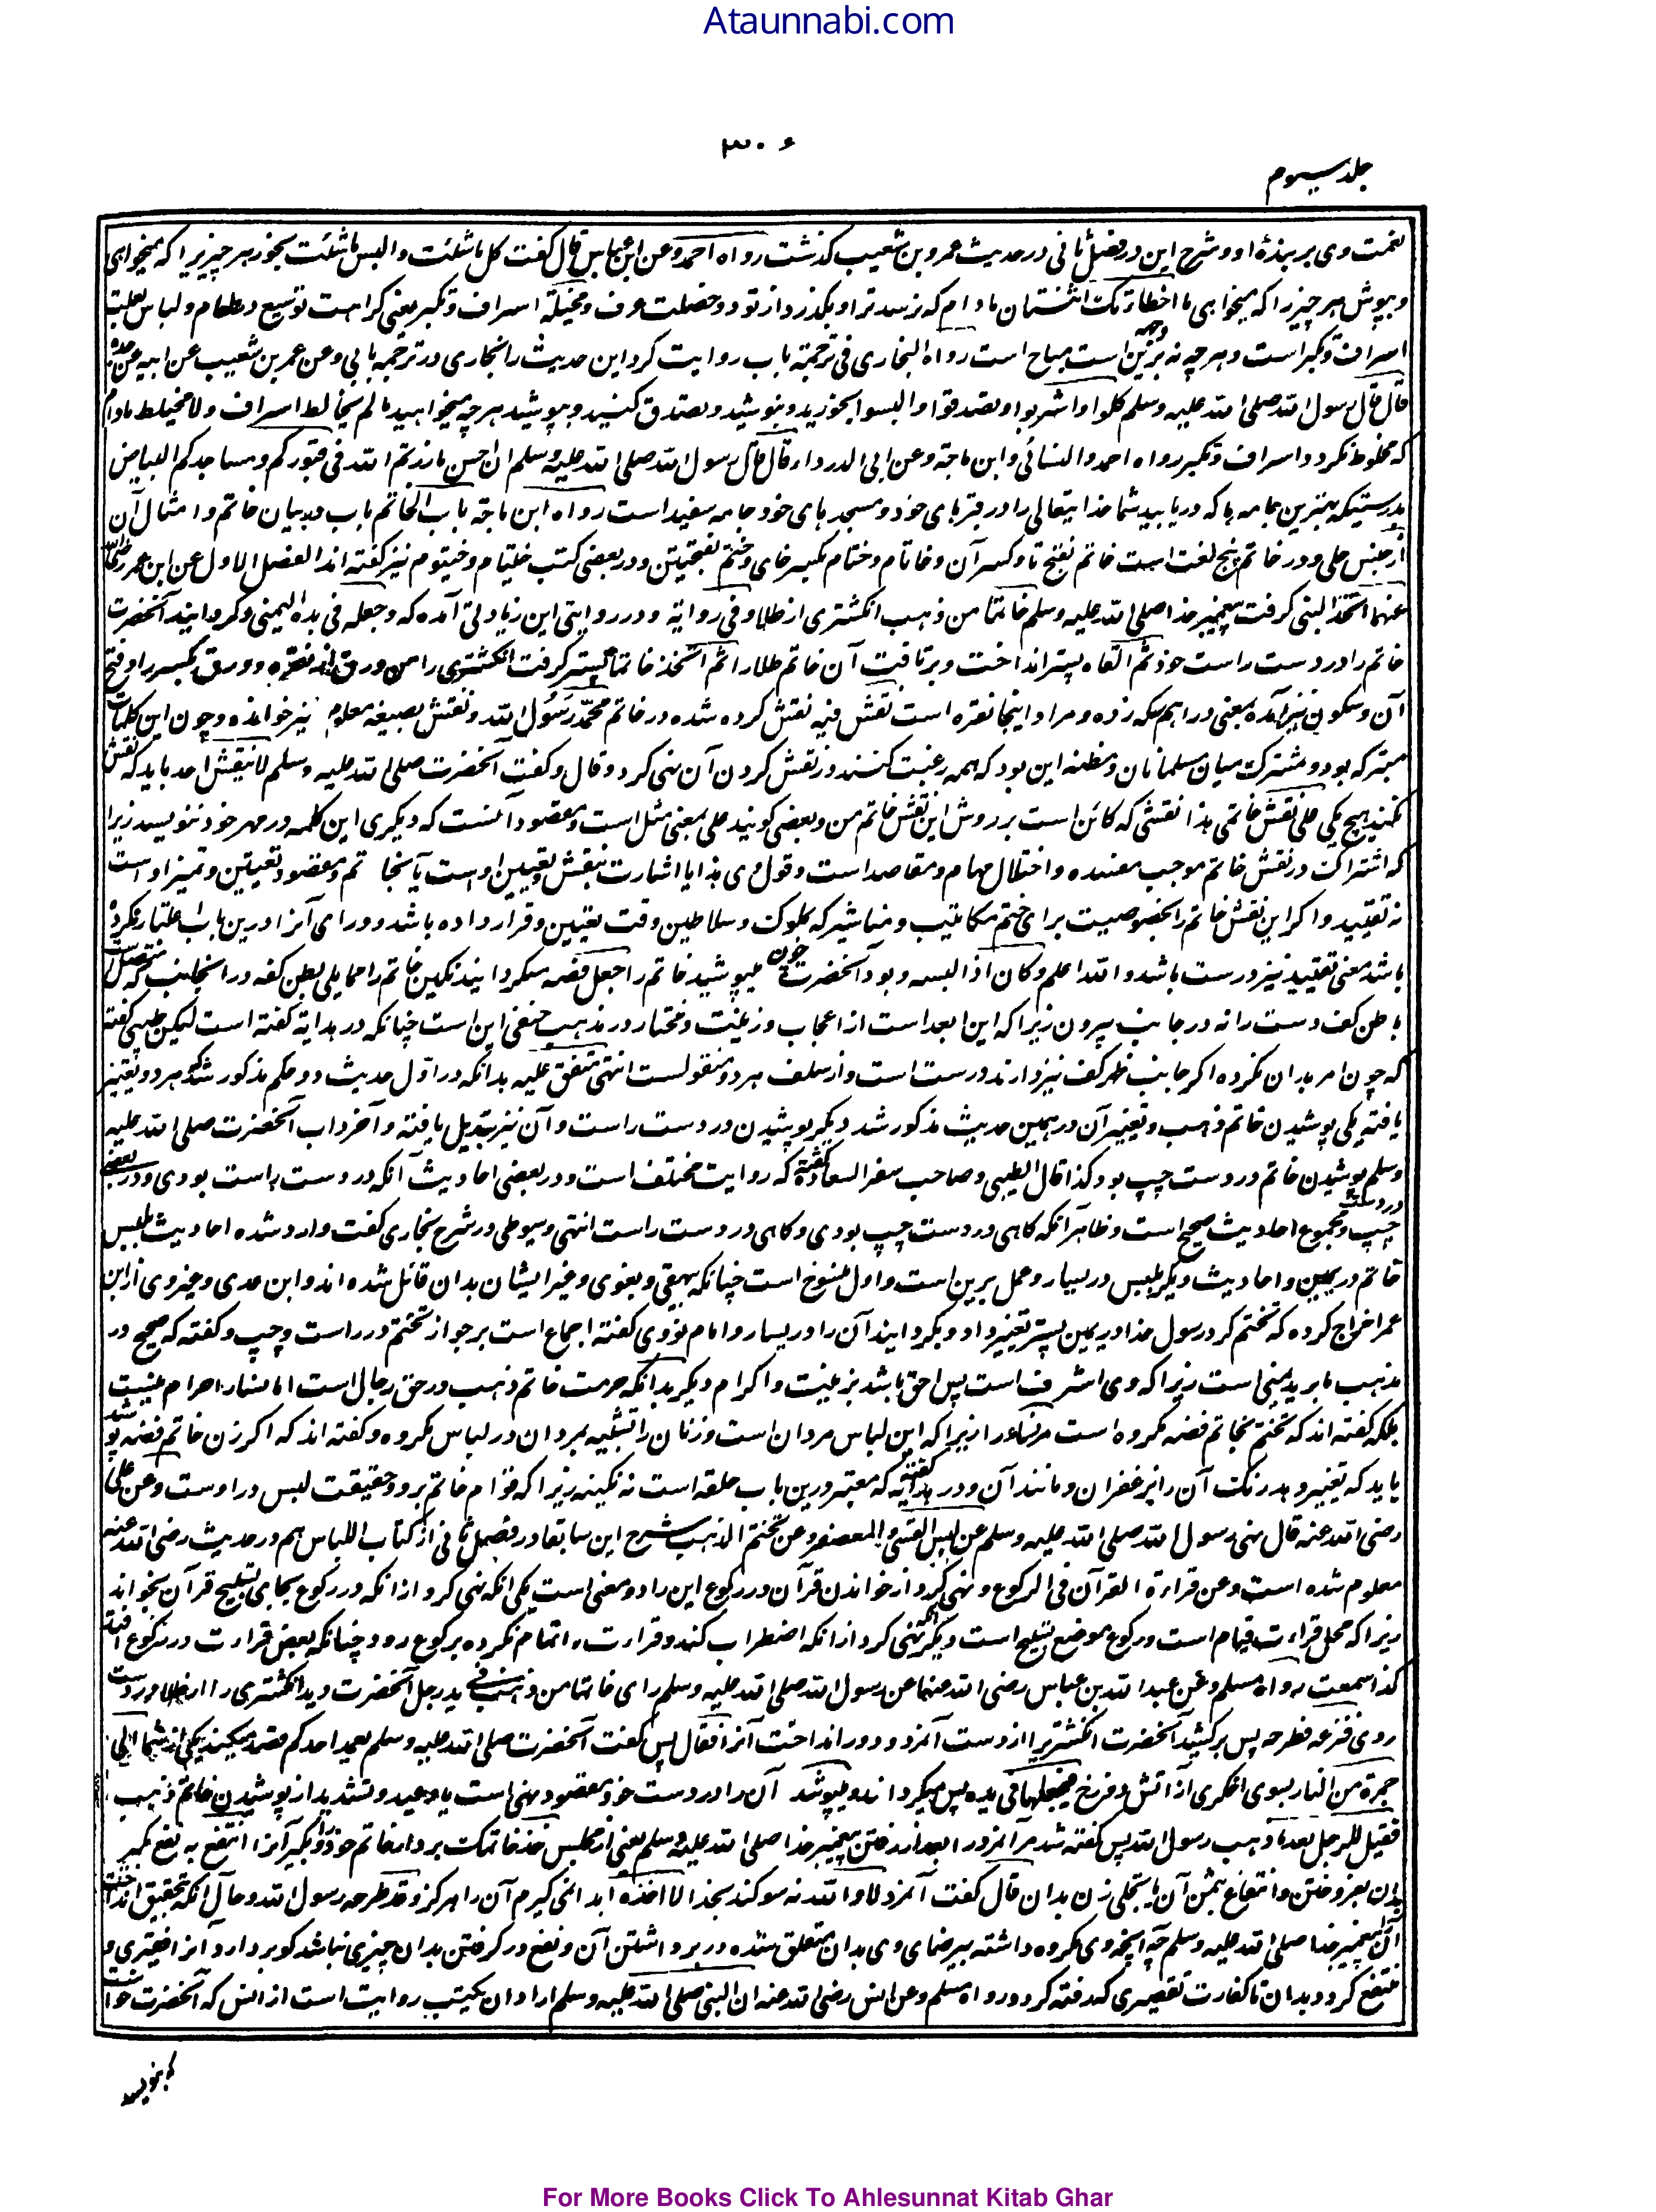 Ataunnabi.com
۳۰۶
جلد سیوم
نعمت وی بر بنده او و شرح این در فصل ثانی در حدیث عمرو بن شعیب کذشت رواه احمد وعن ابن عباس قال کفت کل ما شئت والبس ما شئت بخور هر چیزیرا که میخواهی
و بپوش هر چیز را که میخواهی ما اخطاتک اثنتان مادام که نرسد ترا و بکذرد از تو دو خصلت سرف ومخیلة اسراف و تکبر یعنی کراهت توسیع در طعام و لباس بعلت
اسراف و تکبر است و هرچه نه برین وجه است مباح است رواه البخاری فی ترجمة باب روایت کرد این حدیث را بخاری در ترجمه بابی وعن عمر بن شعیب عن ابیه عن جده
قال قال رسول الله صلی الله علیه وسلم کلوا واشربوا وتصدقوا والبسوا بخورید و بنوشید و تصدق کنید و بپوشید هرچه میخواهید ما لم یخالط اسراف ولا مخیلة مادام
که مخلوط نکردد اسراف و تکبر رواه احمد والنسائی وابن ماجة وعن ابی الدرداء قال قال رسول الله صلی الله علیه وسلم ان احسن ما زرتم الله فی قبورکم ومساجدکم البیاض
بدرستیکه بهترین جامه ها که دریابید شما خدایتعالی را در قبرهای خود و مسجدهای خود جامه سفید است رواه ابن ماجة باب الخاتم باب در بیان خاتم و امثال آن
از جنس حلی و در خاتم پنج لغت است خاتم بفتح تا و کسر آن و خاتام و ختام بکسر خای و ختم بفتحتین و در بعضی کتب ختیام و خیتوم نیز کفته اند الفصل الاول عن ابن عمر رضی الله
عنهما اتخذ النبی کرفت پیغمبر خدا صلی الله علیه وسلم خاتما من ذهب انکشتری از طلا وفی روایة و در روایتی این زیادتی آمده که وجعله فی یده الیمنی و کردانید آنحضرت
خاتم را در دست راست خود ثم القاه پستر انداخت و برتافت آن خاتم طلا را ثم اتخذ خاتما پستر کرفت انکشتری را من ورق از نقره و ورق بکسر را و فتح
آن و سکون نیز آمده بمعنی دراهم سکه زده و مراد اینجا نقره است نقش فیه نقش کرده شده در خاتم محمد رسول الله و نقش بصیغه معلوم نیز خوانده و چون این کلمات
متبرکه بود و مشترک میان مسلمانان و مظنه این بود که همه رغبت کنند در نقش کردن آن نهی کرد و قال و کفت آنحضرت صلی الله علیه وسلم لا ینقش احد باید که نقش
نکند هیچ یکی علی نقش خاتمی هذا نقشی که کائن است بر روش این نقش خاتم من و بعضی کویند علی بمعنی مثل است و مقصود آنست که دیکری این کلمه در مهر خود ننویسد زیرا
که اشتراک در نقش خاتم موجب مفسده و اختلال مهام و مقاصد است و قول وی هذا یا اشارت بنقش و تعیین او است یا بخاتم و مقصود تعیین و تمیز او است
نه تقیید و اکر این نقش خاتم را بخصوصیت برای ختم مکاتیب و مناشیر که بملوک و سلاطین وقت تعیین و قرار داده باشد و ورای آنرا درین باب اعتبار نکرده
باشد معنی تقیید نیز درست باشد والله اعلم وکان اذا لبسه و بود آنحضرت چون میپوشید خاتم را جعل فصه میکردانید نکین خاتم را مما یلی بطن کفه در آنجانب که متصل است
باطن کف دست را نه در جانب بیرون زیرا که این ابعد است از اعجاب و زینت و مختار در مذهب حنفی این است چنانکه در هدایه کفته است لیکن طیبی کفته
که چون امر بدان نکرده اکر جانب ظهر کف نیز دارند درست است و از سلف هر دو منقولست انتهی متفق علیه بدانکه در اول حدیث دو حکم مذکور شد که هر دو تغییر
یافته یکی پوشیدن خاتم ذهب و تغییر آن در همین حدیث مذکور شد دیکر پوشیدن در دست راست و آن نیز تبدیل یافته و آخر داب آنحضرت صلی الله علیه
وسلم پوشیدن خاتم در دست چپ بود کذا قال الطیبی و صاحب سفر السعادة کفته که روایت مختلف است و در بعضی احادیث آنکه در دست راست بودی و در بعضی در دست
چپ و مجموع احادیث صحیح است و ظاهر آنکه کاهی در دست چپ بودی و کاهی در دست راست انتهی و سیوطی در شرح بخاری کفت وارد شده احادیث بلبس
خاتم در یمین و احادیث دیکر بلبس در یسار و عمل برین است و اول منسوخ است چنانکه بیهقی و بغوی و غیر ایشان بدان قائل شده اند و ابن عدی و غیر وی از ابن
عمر اخراج کرده که تختم کرد رسول خدا در یمین پستر تغییر داد و بکردانید آن را در یسار و امام نووی کفته اجماع است بر جواز تختم در راست و چپ و کفته که صحیح در
مذهب ما برید یمنی است زیرا که وی اشرف است پس احق باشد بزینت و اکرام دیکر بدانکه حرمت خاتم ذهب در حق رجال است اما نساء را حرام نیست
بلکه کفته اند که تختم بخاتم فضه مکروه است مر نساء را زیرا که این لباس مردان است و زنان را تشبیه بمردان در لباس مکروه و کفته اند که اکر زن خاتم فضه پوشد
باید که تغییر دهد رنک آن را بزعفران و مانند آن و در هدایه کفته که معتبر درین باب حلقه است نه نکینه زیرا که قوام خاتم بدو و حقیقت لبس در اوست وعن علی
رضی الله عنه قال نهی رسول الله صلی الله علیه وسلم عن لبس القسی والمعصفر وعن تختم الذهب شرح این سابقا در فصل ثانی از کتاب اللباس هم در حدیث رضی الله عنه
معلوم شده است وعن قراءة القرآن فی الرکوع و نهی کرد از خواندن قرآن در رکوع این را دو معنی است یکی آنکه نهی کرد از آنکه در رکوع بجای تسبیح قرآن بخواند
زیرا که محل قراءت قیام است و رکوع موضع تسبیح است دیکر آنکه نهی کرد از آنکه اضطراب کند و قراءت را تمام نکرده برکوع رود چنانکه بعض قراءت در رکوع افتد
کذا سمعت رواه مسلم وعن عبد الله بن عباس رضی الله عنهما ان رسول الله صلی الله علیه وسلم رای خاتما من ذهب فی ید رجل آنحضرت دید انکشتری را از طلا در دست
روی فنزعه فطرحه پس برکشید آنحضرت انکشتریرا از دست آنمرد و دور انداخت آنرا فقال پس کفت آنحضرت صلی الله علیه وسلم یعمد احدکم قصد میکند یکی از شما الی
جمرة من النار بسوی اخکری از آتش دوزخ فیجعلها فی یده پس میکرداند و میپوشد آن را در دست خود مقصود نهی است یا وعید و تشدید از پوشیدن خاتم ذهب
فقیل للرجل بعد ما ذهب رسول الله پس کفته شد مر آنمرد را بعد از رفتن پیغمبر خدا صلی الله علیه وسلم یعنی از مجلس خذ خاتمک بردار خاتم خود را و بکیر آنرا انتفع به نفع کیر
بدان بفروختن و انتفاع بثمن آن یا بتحلی زن بدان قال کفت آنمرد لا والله نه سوکند بخدا لا اخذه ابدا نمی کیرم آن را هرکز وقد طرحه رسول الله و حال آنکه بتحقیق انداخت
آن را پیغمبر خدا صلی الله علیه وسلم چه آنچه وی مکروه داشته بیرضای وی بدان متعلق شده در برداشتن آن و نفع در کرفتن بدان چیزی نباشد کو بردارد آنرا فقیری و
منتفع کردد بدان تا کفارت تقصیری که رفته کردد رواه مسلم وعن انس رضی الله عنه ان النبی صلی الله علیه وسلم اراد ان یکتب روایت است از انس که آنحضرت خواست
که بنویسد
For More Books Click To Ahlesunnat Kitab Ghar